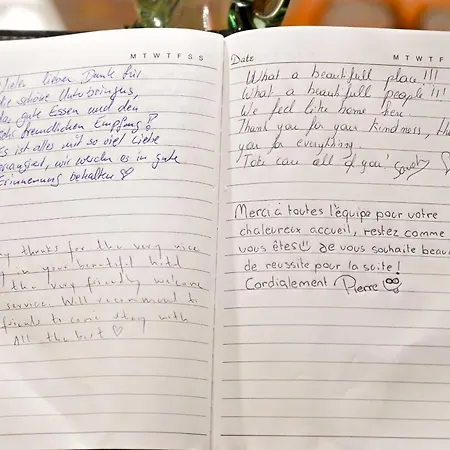 M T W T F S S
lieben Dank für
schöne Unterbringung,
gute Essen und den
freundlichen Empfang!
Es ist alles mit so viel Liebe
wir werden es in gute
Erinnerung behalten ♡
thanks for the very nice
in your beautiful hotel
the very friendly welcome
service. Will recommend to
friends to come stay with
All the best ♡
Date
M T W T F
What a beautifull place!!!
What a beautifull people!!!
We feel like home here
Thank you for your kindness,
you for everything
Take care all of you!
Merci à toutes l'équipe pour votre
chaleureux accueil, restez comme
vous êtes!! Je vous souhaite
de reussite pour la suite!
Cordialement Pierre